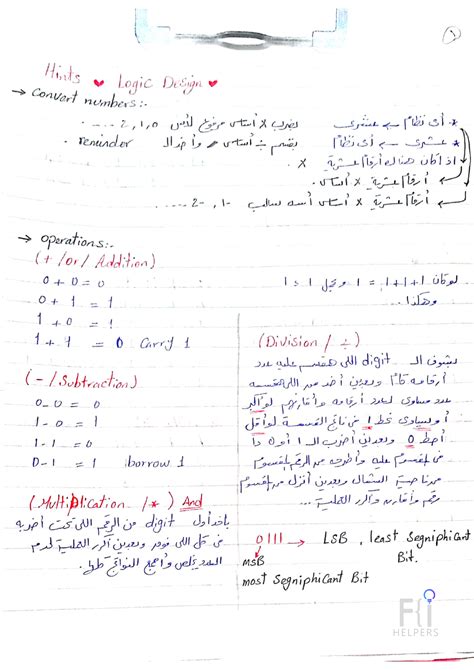 ١
Hints ♥ Logic Design ♥
→ convert numbers:-
* أى نظام ← عشرى بضرب x أساس مرفوع لأس 0, 1, 2, ....
* عشرى ← أى نظام بقسم ÷ أساس وأخد ال reminder
اذا كان هناك أرقام عشرية x
أرقام عشرية x أساس
أرقام عشرية x أساس أسه سالب -1, -2 .....
→ operations:-
(+ /or/ Addition)
0 + 0 = 0
0 + 1 = 1
1 + 0 = 1
1 + 1 = 0 Carry 1
لو كان 1+1+1 = 1 ونحمل 1
وهكذا..
(- / Subtraction)
0 - 0 = 0
1 - 0 = 1
1 - 1 = 0
0 - 1 = 1 borrow 1
(Multiplication / *) And
باخد أول digit من الرقم اللى تحت أضربه
فى كل اللى فوق وبعدين أكرر العملية لحد م
العدد يخلص وأجمع النواتج
(Division / ÷)
بشوف الـ digit اللى هقسم عليه عدد
أرقامه كام وبعدين أخد من اللى هقسمه
عدد مساوى لعدد أرقامه وأقارنهم لو أكبر
أو بيساوى نحط 1 فى ناتج القسمة لو أقل
أحط 0 وبعدين أضرب الـ 1 أو 0 دا
فى المقسوم عليه وأطرحه من الرقم المقسوم
من ناحية الشمال وبعدين أنزل من المقسوم
رقم وأقارن وأكرر العملية ...
0111 → LSB, least Segniphicant
Bit.
MSB
most Segniphicant Bit
F{i
HELPERS